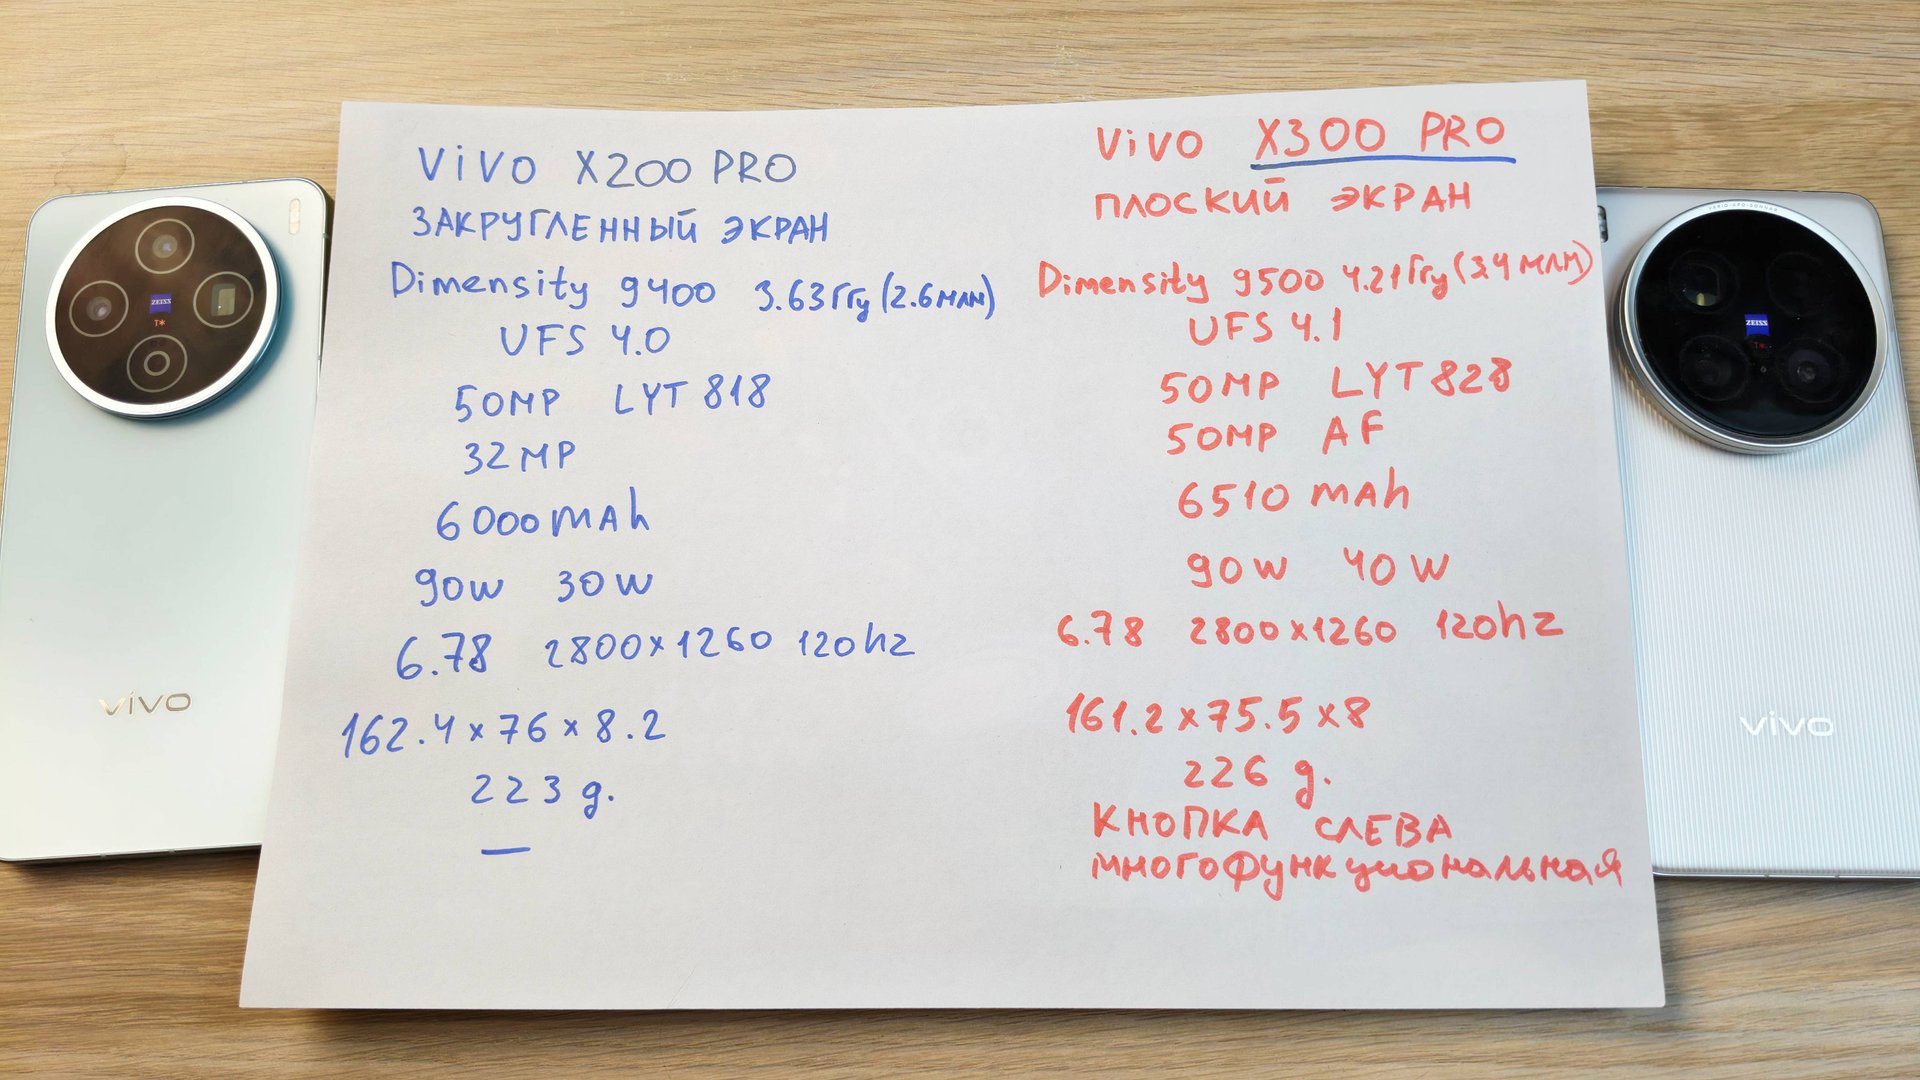 VIVO X200 PRO
ЗАКРУГЛЕННЫЙ ЭКРАН
Dimensity 9400 3.63ГГц (2.6МЛН)
UFS 4.0
50MP LYT 818
32MP
6000mAh
90W 30W
6.78 2800x1260 120hz
162.4x76x8.2
223 g.
—
VIVO X300 PRO
ПЛОСКИЙ ЭКРАН
Dimensity 9500 4.21ГГц (3.4МЛН)
UFS 4.1
50MP LYT 828
50MP AF
6510 mAh
90W 40W
6.78 2800x1260 120hz
161.2x75.5x8
226 g.
КНОПКА СЛЕВА
многофункциональная
ZEISS
T*
vivo
ZEISS
T*
vivo